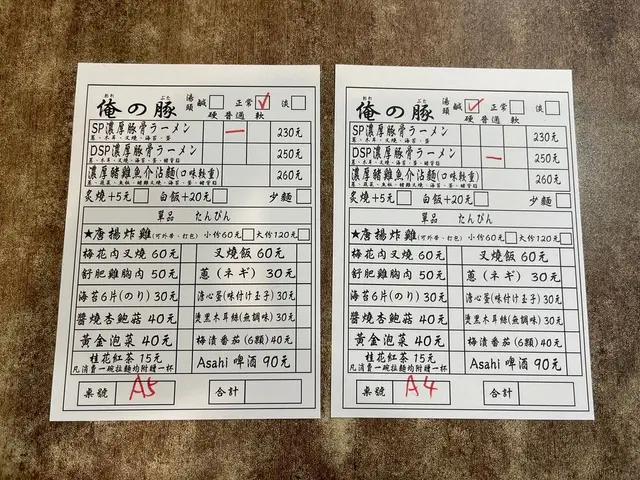 おれ ぶた
俺の豚 湯頭 鹹 正常 ✓ 淡
硬 普通 軟
SP濃厚豚骨ラーメン 一 230元
DSP濃厚豚骨ラーメン 250元
濃厚豬雞魚介沾麵(口味較重) 260元
炙燒+5元 白飯+20元 少麵
單品 たんぴん
★唐揚炸雞(可外帶、打包) 小份60元 大份120元
梅花肉叉燒 60元 叉燒飯 60元
舒肥雞胸肉 50元 蔥(ネギ) 30元
海苔6片(のり) 30元 溏心蛋(味付け玉子) 30元
醬燒杏鮑菇 40元 燙黑木耳絲(無調味) 30元
黃金泡菜 40元 梅漬番茄(6顆) 40元
桂花紅茶 15元 Asahi 啤酒 90元
凡消費一碗拉麵均附贈一杯
桌號 A5 合計
おれ ぶた
俺の豚 湯頭 鹹 ✓ 正常 淡
硬 普通 軟
SP濃厚豚骨ラーメン 230元
DSP濃厚豚骨ラーメン 一 250元
濃厚豬雞魚介沾麵(口味較重) 260元
炙燒+5元 白飯+20元 少麵
單品 たんぴん
★唐揚炸雞(可外帶、打包) 小份60元 大份120元
梅花肉叉燒 60元 叉燒飯 60元
舒肥雞胸肉 50元 蔥(ネギ) 30元
海苔6片(のり) 30元 溏心蛋(味付け玉子) 30元
醬燒杏鮑菇 40元 燙黑木耳絲(無調味) 30元
黃金泡菜 40元 梅漬番茄(6顆) 40元
桂花紅茶 15元 Asahi 啤酒 90元
凡消費一碗拉麵均附贈一杯
桌號 A4 合計